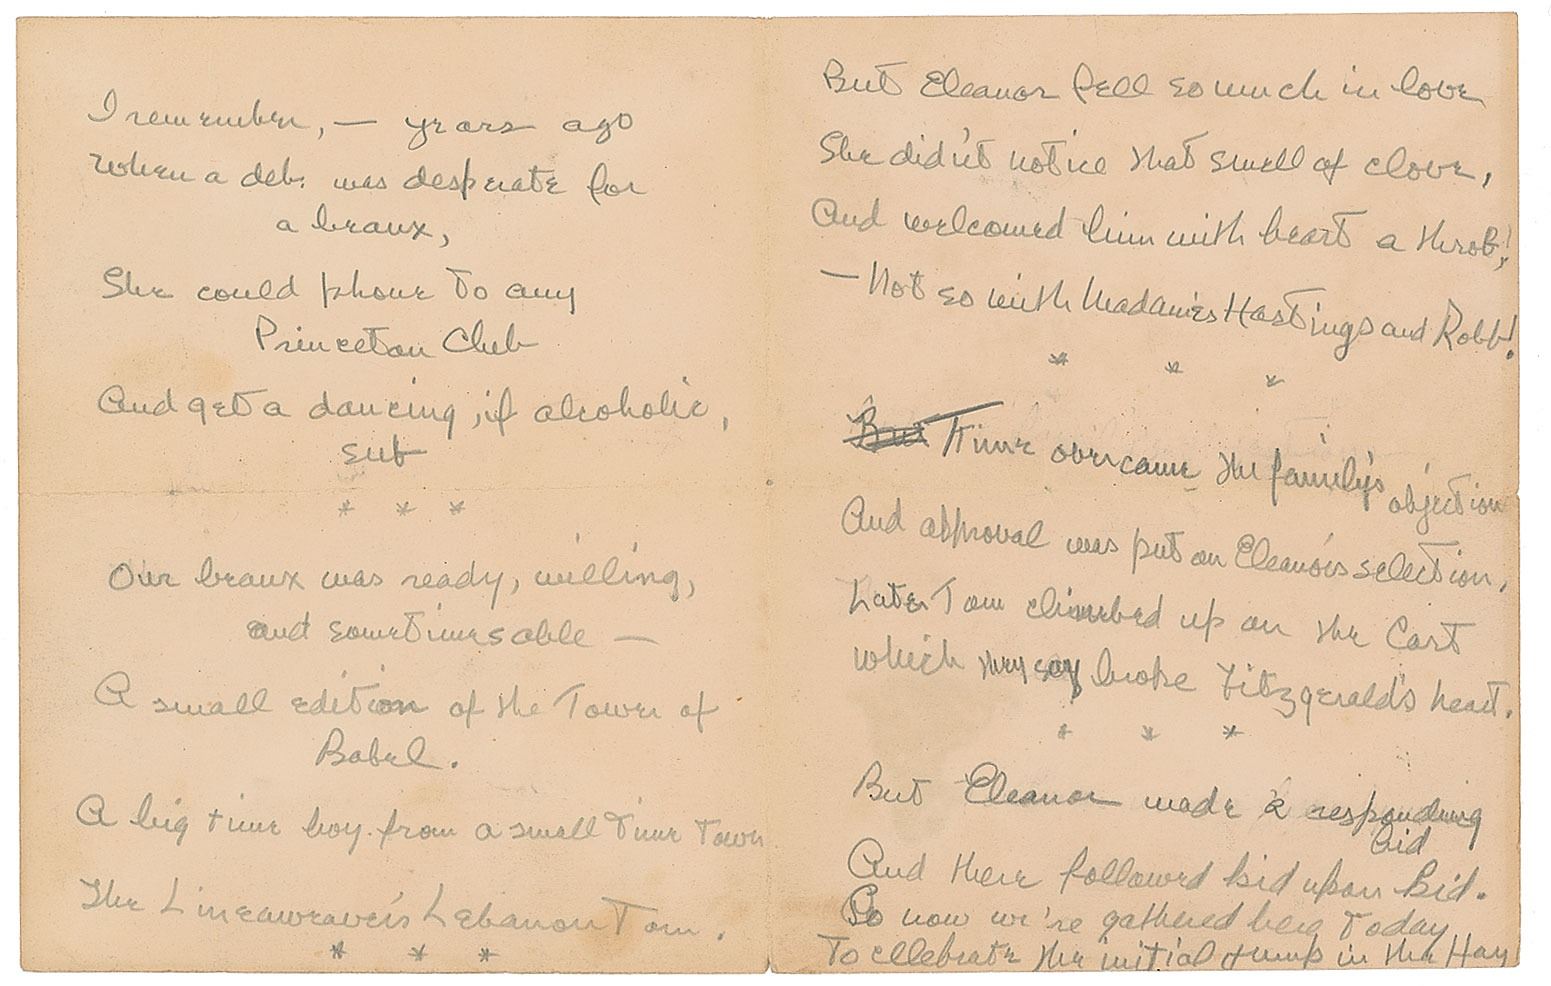 I remember, — years ago
When a deb. was desperate for
a beaux,
She could phone to any
Princeton Club
And get a dancing, if alcoholic,
sub
* * *
Our beaux was ready, willing,
and sometimes able —
A small edition of the Tower of
Babel.
A big time boy from a small time town
The Lineaweaver's Lebanon Tom.
* * *
But Eleanor fell so much in love
She didn't notice that smell of clove,
And welcomed him with heart a throb!
— Not so with Madames Hastings and Robb!
* * *
But Time overcame the family's objection
And approval was put on Eleanor's selection,
Later Tom climbed up on the Cart
which they say broke Fitzgerald's heart.
* * *
But Eleanor made a responding
bid
And there followed bid upon bid.
So now we're gathered here today
To cellebrate the initial jump in the Hay